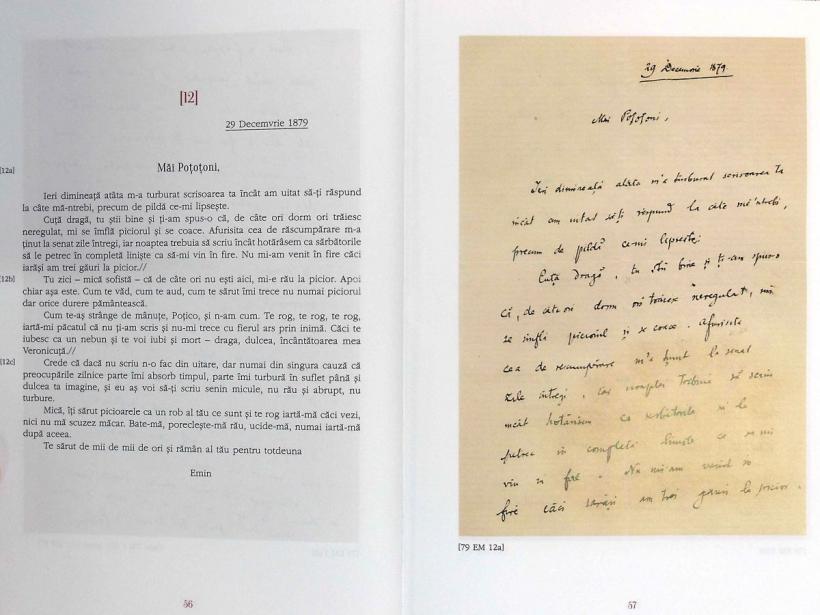 [12]
29 Decemvrie 1879
[12a]
Măi Poțoțoni,
Ieri dimineață atâta m-a turburat scrisoarea ta încât am uitat să-ți răspund
la câte mă-ntrebi, precum de pildă ce-mi lipsește.
Cuță dragă, tu știi bine și ți-am spus-o că, de câte ori dorm ori trăiesc
neregulat, mi se îmflă piciorul și se coace. Afurisita cea de răscumpărare m-a
ținut la senat zile întregi, iar noaptea trebuia să scriu încât hotărâsem ca sărbătorile
să le petrec în completă liniște ca să-mi vin în fire. Nu mi-am venit în fire căci
iarăși am trei găuri la picior.//
[12b]
Tu zici – mică sofistă – că de câte ori nu ești aici, mi-e rău la picior. Apoi
chiar așa este. Cum te văd, cum te aud, cum te sărut îmi trece nu numai piciorul
dar orice durere pământească.
Cum te-aș strânge de mânuțe, Poțico, și n-am cum. Te rog, te rog, te rog,
iartă-mi păcatul că nu ți-am scris și nu-mi trece cu fierul ars prin inimă. Căci te
iubesc ca un nebun și te voi iubi și mort – draga, dulcea, încântătoarea mea
Veronicuță.//
[12c]
Crede că dacă nu scriu n-o fac din uitare, dar numai din singura cauză că
preocupările zilnice parte îmi absorb timpul, parte îmi turbură în suflet până și
dulcea ta imagine, și eu aș voi să-ți scriu senin micule, nu rău și abrupt, nu
turbure.
Mică, îți sărut picioarele ca un rob al tău ce sunt și te rog iartă-mă căci vezi,
nici nu mă scuzez măcar. Bate-mă, poreclește-mă rău, ucide-mă, numai iartă-mă
după aceea.
Te sărut de mii de mii de ori și rămân al tău pentru totdeuna
Emin
56
29 Decemvrie 1879
Măi Poțoțoni,
Ieri dimineață atâta m'a turburat scrisoarea ta
încât am uitat să-ți respund la câte mă'ntrebi,
precum de pildă ce-mi lipsește.
Cuță dragă, tu știi bine și ți-am spus-o
că, de câte ori dorm ori trăiesc neregulat, mi
se îmflă piciorul și se coace. Afurisita
cea de rescumpărare m'a ținut la senat
zile întregi, iar noaptea trebuia să scriu
încât hotărâsem ca serbătorile să le
petrec în completă liniște ca să-mi
viu în fire. Nu mi-am venit în
fire căci iarăși am trei găuri la picior.
[79 EM 12a]
57